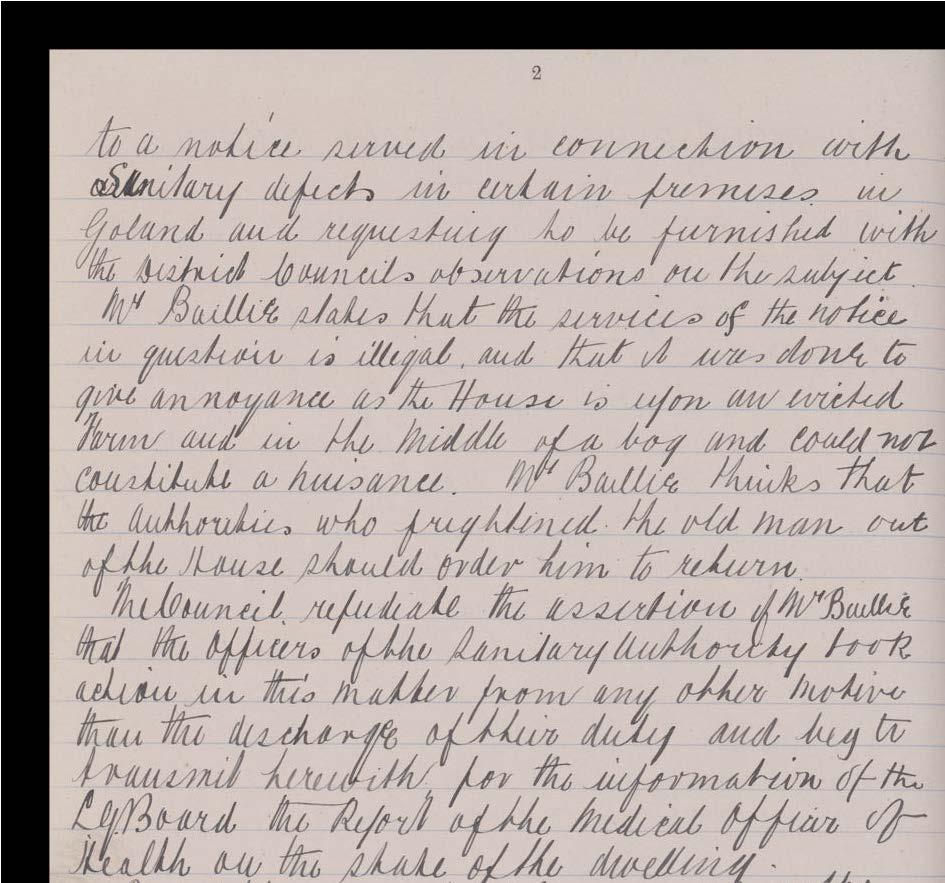 2
to a notice served in connection with
Sanitary defects in certain premises in
Goland and requesting to be furnished with
the District Councils observations on the subject.
Mr Baillie states that the services of the notice
in question is illegal, and that it was done to
give annoyance as the House is upon an evicted
Farm and in the Middle of a bog and could not
constitute a nuisance. Mr Baillie thinks that
the Authorities who frightened the old man out
of the House should order him to return.
The Council repudiate the assertion of Mr Baillie
that the Officers of the Sanitary Authority took
action in this Matter from any other Motive
than the discharge of their duty and beg to
transmit herewith, for the information of the
LG Board the Report of the Medical Officer of
Health on the state of the dwelling.